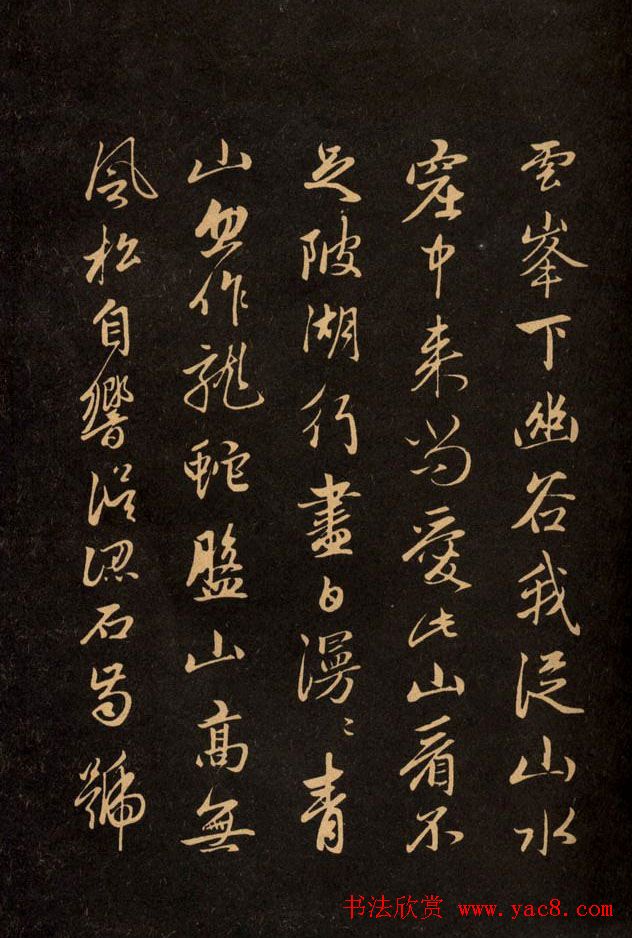 雲峯下幽谷我從山水
窟中來尚愛此山看不
足陂湖行盡白漫〻青
山忽作龍蛇盤山高無
風松自響誤認石齒號
书法欣赏 www.yac8.com